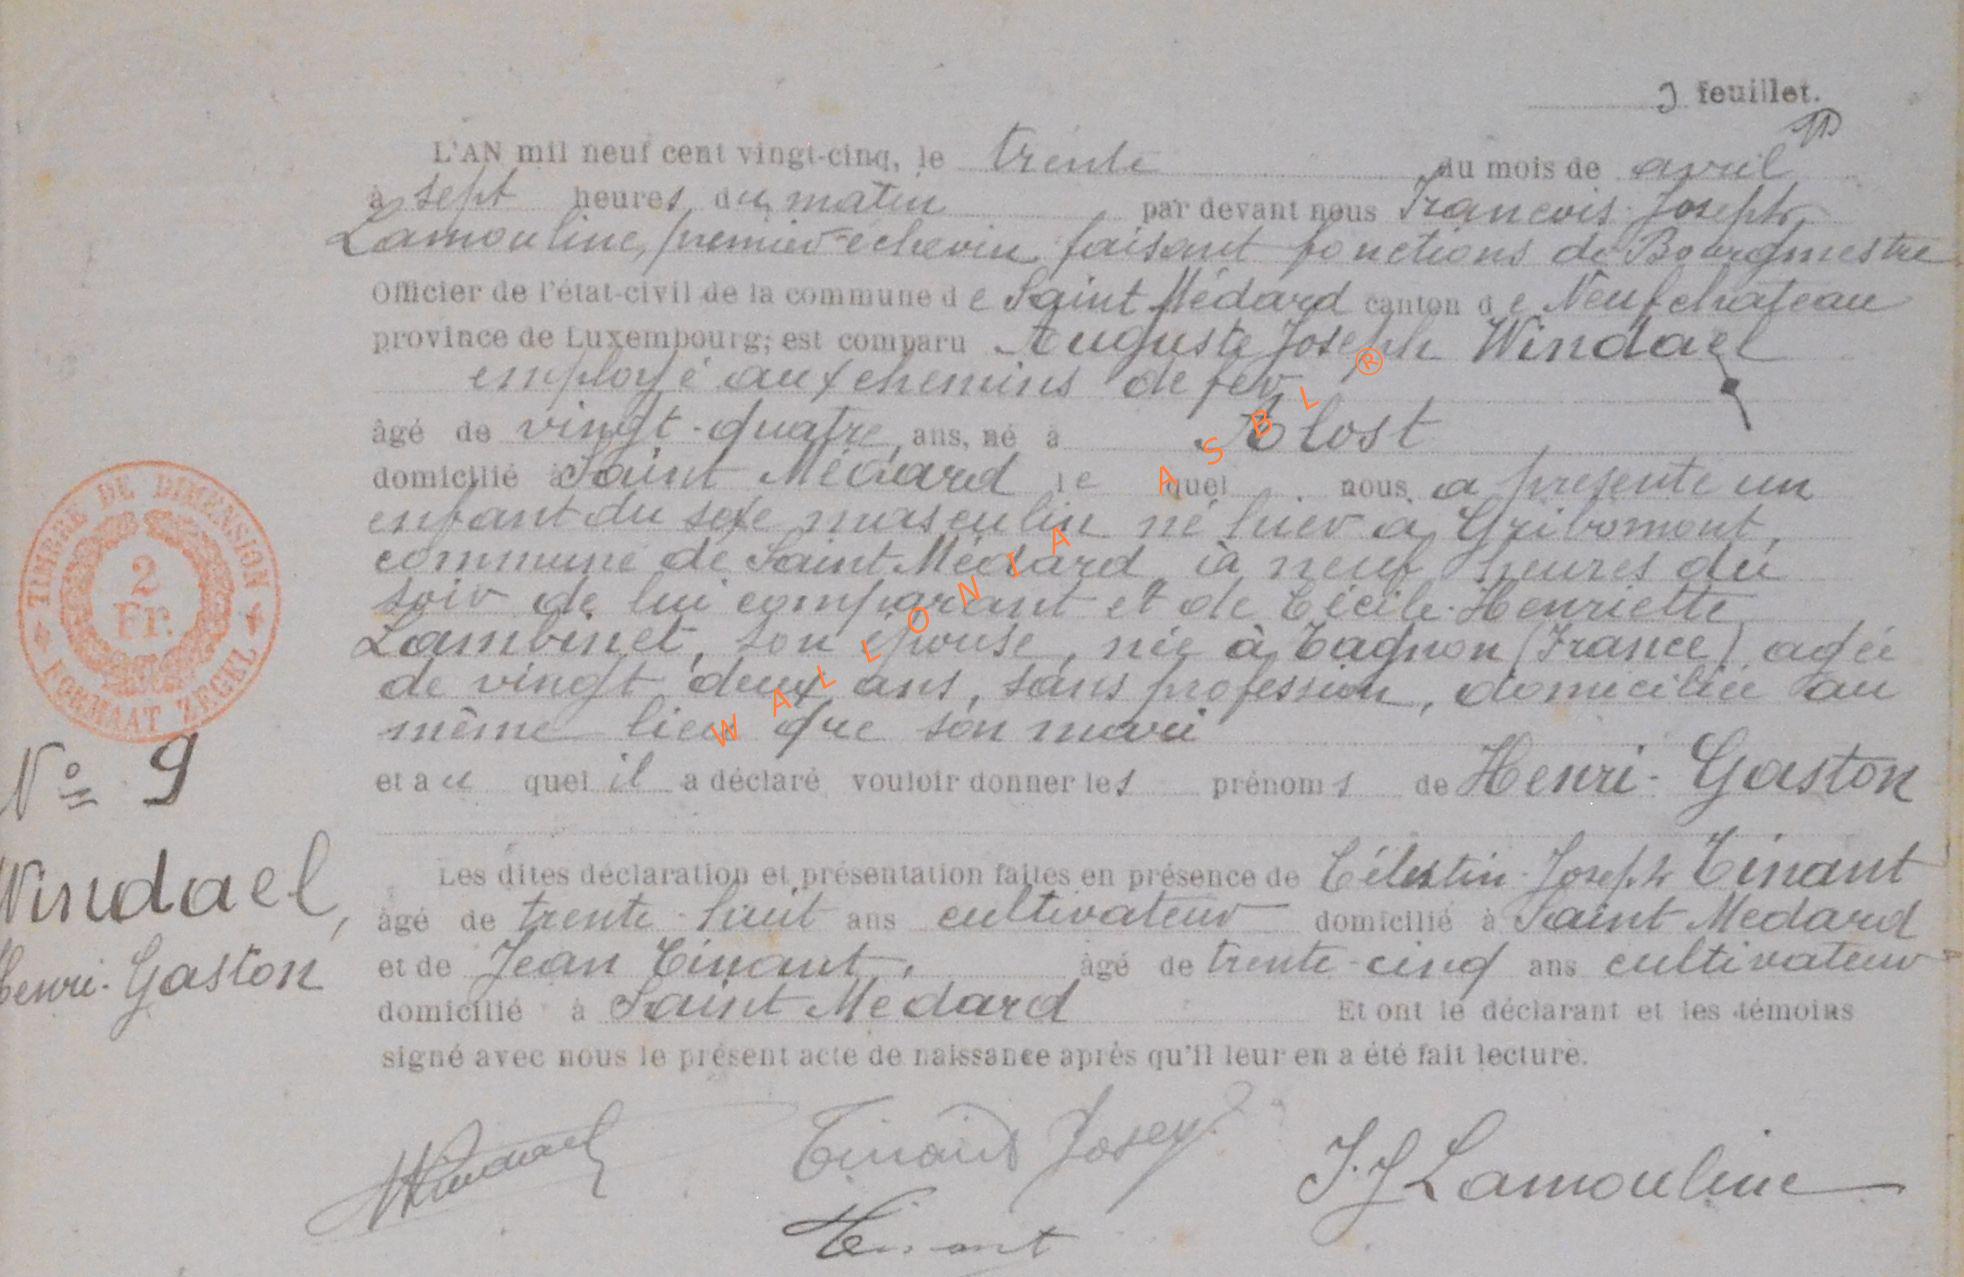 3 feuillet.
L'AN mil neuf cent vingt-cinq, le trente du mois de avril
à sept heures du matin par devant nous François-Joseph
Lamouline, premier échevin faisant fonctions de Bourgmestre
Officier de l'état-civil de la commune de Saint Médard canton de Neufchateau
province de Luxembourg; est comparu Auguste Joseph Windael
employé aux chemins de fer
âgé de vingt-quatre ans, né à Alost
domicilié à Saint Médard lequel nous a présenté un
enfant du sexe masculin né hier à Gribomont,
commune de Saint-Médard, à neuf heures du
soir de lui comparant et de Cécile-Henriette
Lambinet, son épouse, née à Tagnon (France), agée
de vingt deux ans, sans profession, domiciliée au
même lieu que son mari
et auquel il a déclaré vouloir donner les prénoms de Henri-Gaston
Les dites déclaration et présentation faites en présence de Célestin-Joseph Tinant
âgé de trente-huit ans cultivateur domicilié à Saint Medard
et de Jean Tinant, âgé de trente-cinq ans cultivateur
domicilié à Saint Medard Et ont le déclarant et les témoins
signé avec nous le présent acte de naissance après qu'il leur en a été fait lecture.
Windael Tinant Josep F. J Lamouline
Tinant
TIMBRE DE DIMENSION
2
Fr.
FORMAAT ZEGEL
N° 9
Windael,
Henri-Gaston
WALLONIA ASBL ®